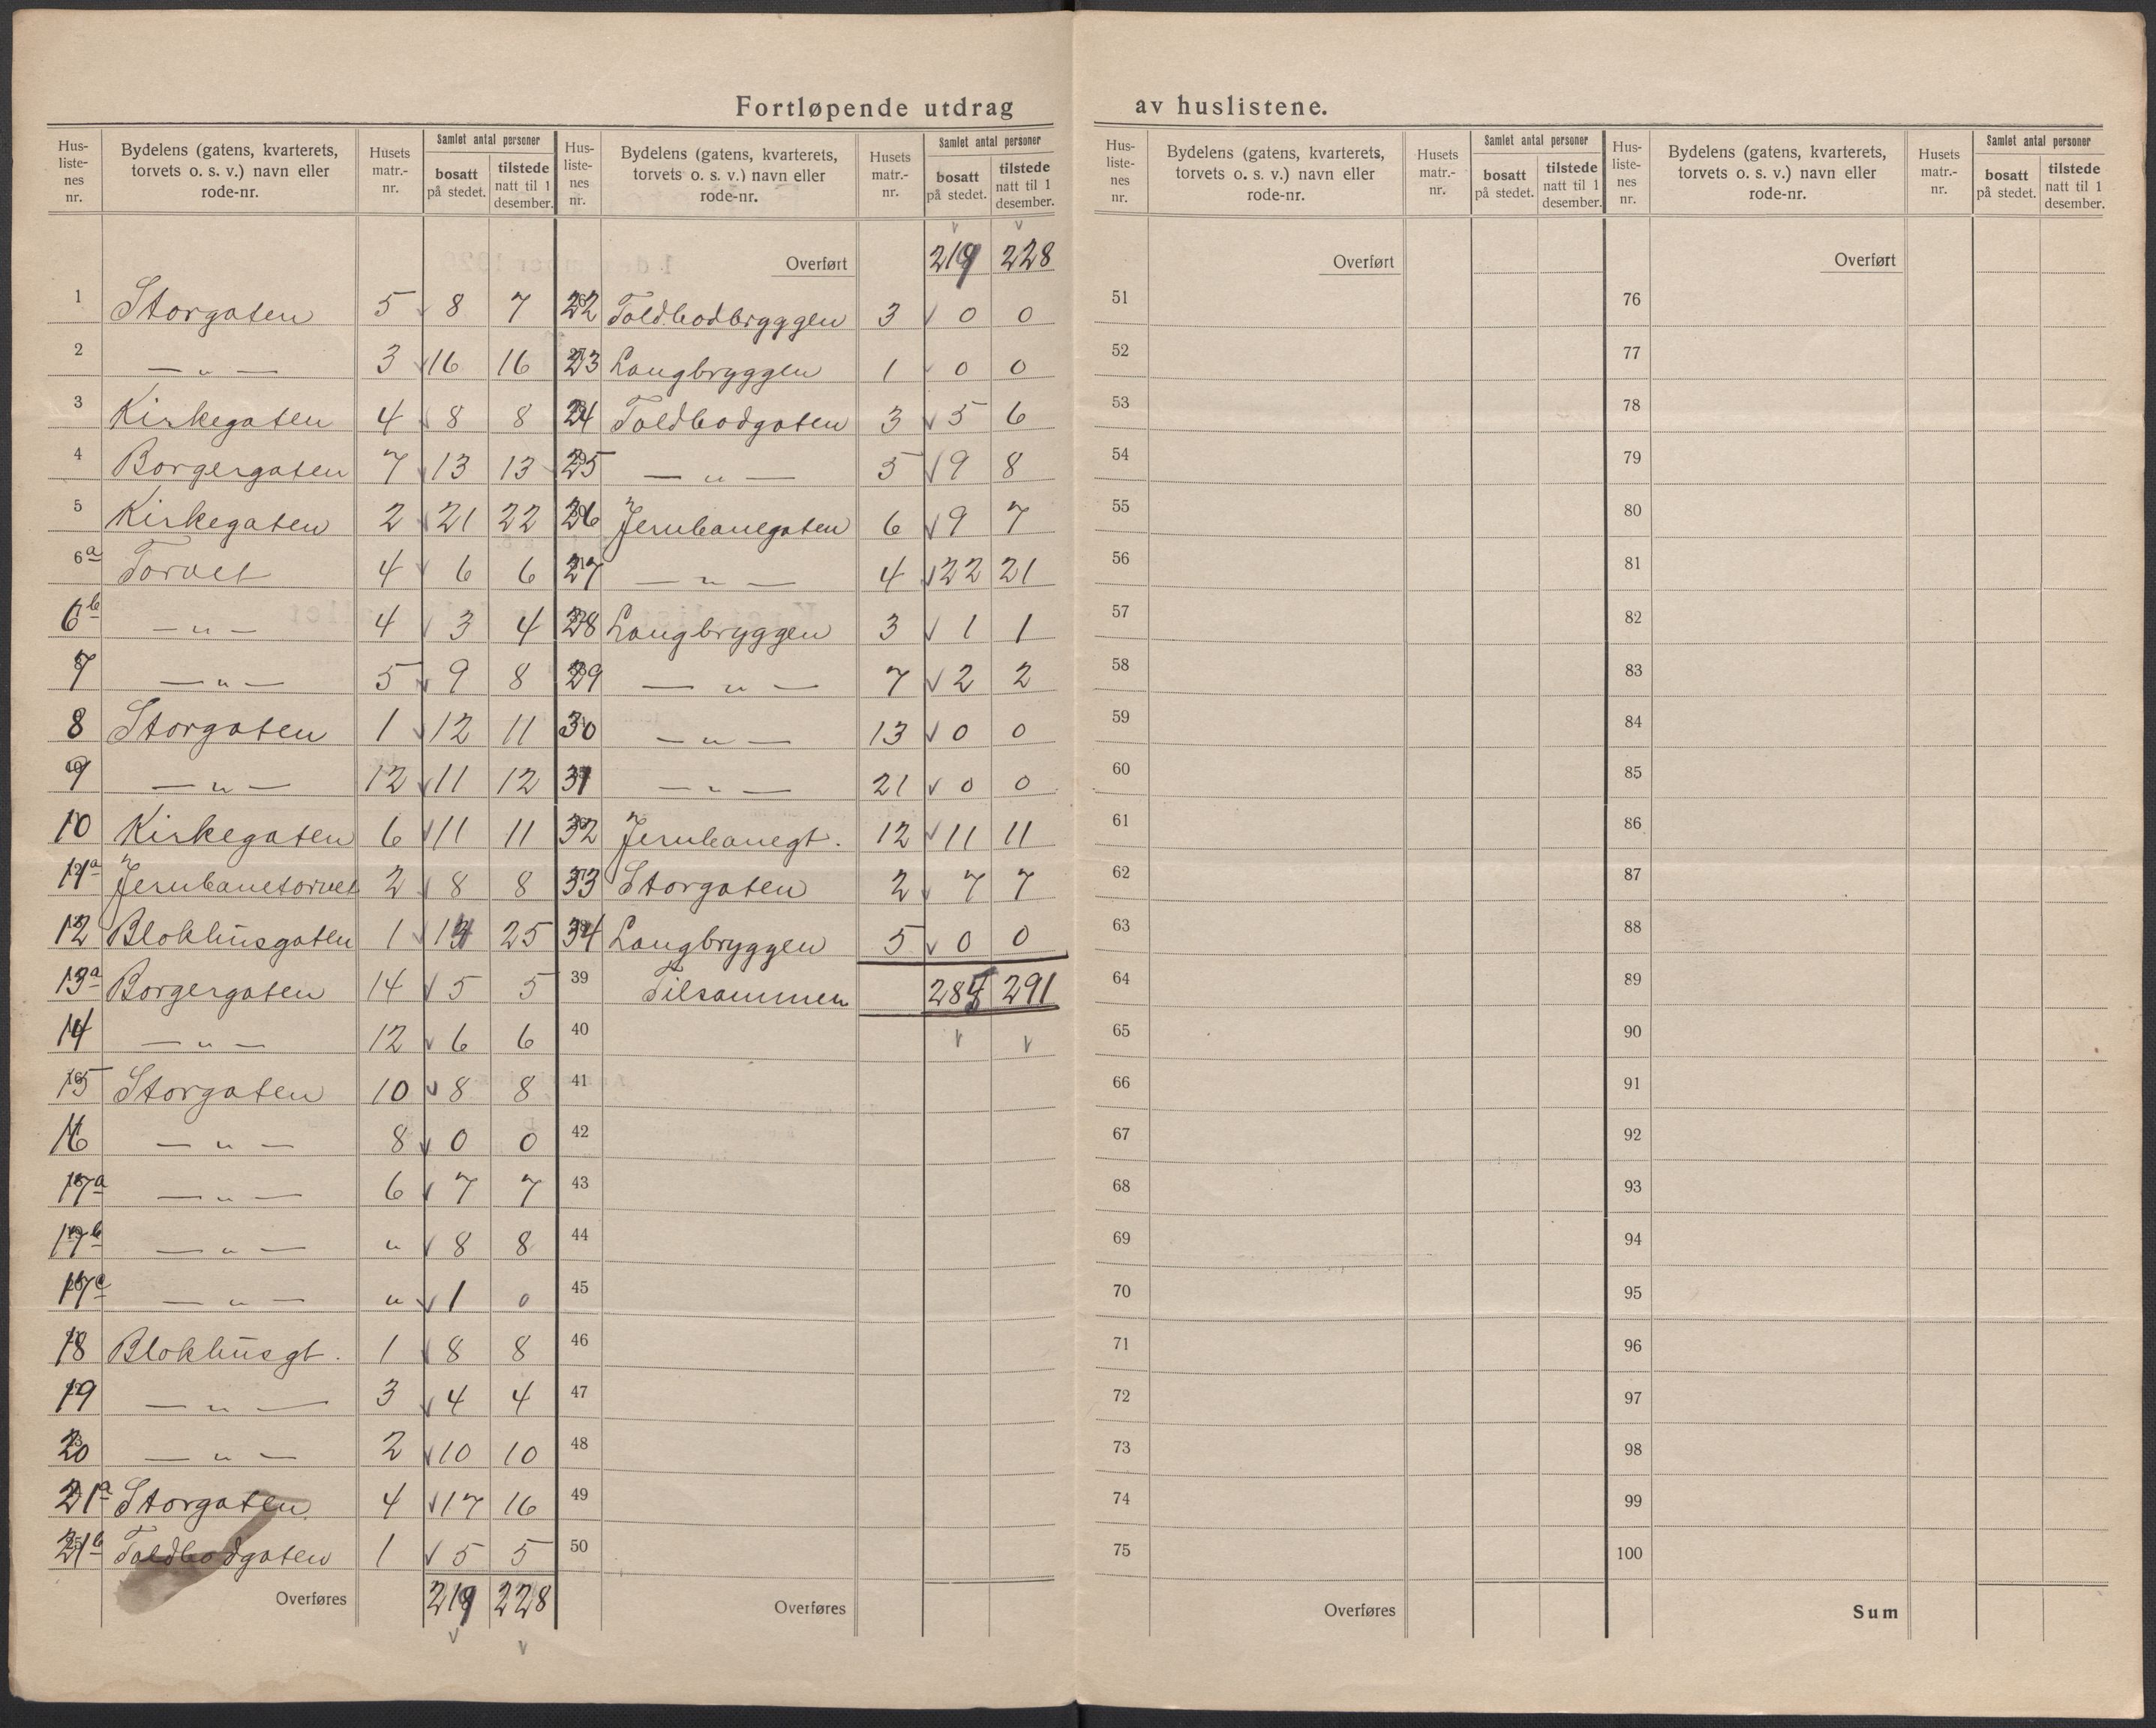 Fortløpende utdrag av huslistene.
Hus-listenes nr. | Bydelens (gatens, kvarterets, torvets o. s. v.) navn eller rode-nr. | Husets matr.-nr. | Samlet antal personer bosatt på stedet. | tilstede natt til 1 desember.
1 Storgaten 5 8 7
2 — „ — 3 16 16
3 Kirkegaten 4 8 8
4 Borgergaten 7 13 13
5 Kirkegaten 2 21 22
6a Torvet 4 6 6
6b — „ — 4 3 4
7 — „ — 5 9 8
8 Storgaten 1 12 11
9 — „ — 12 11 12
10 Kirkegaten 6 11 11
11a Jernbanetorvet 2 8 8
12 Blokhusgaten 1 14 25
13a Borgergaten 14 5 5
14 — „ — 12 6 6
15 Storgaten 10 8 8
16 — „ — 8 0 0
17a — „ — 6 7 7
17b — „ — „ 8 8
17c — „ — „ 1 0
18 Blokhusgt. 1 8 8
19 — „ — 3 4 4
20 — „ — 2 10 10
21a Storgaten 4 17 16
21b Toldbodgaten 1 5 5
Overføres 219 228
Hus-listenes nr. | Bydelens (gatens, kvarterets, torvets o. s. v.) navn eller rode-nr. | Husets matr.-nr. | Samlet antal personer bosatt på stedet. | tilstede natt til 1 desember.
Overført 219 228
22 Toldbodbryggen 3 0 0
23 Langbryggen 1 0 0
24 Toldbodgaten 3 5 6
25 — „ — 5 9 8
26 Jernbanegaten 6 9 7
27 — „ — 4 22 21
28 Langbryggen 3 1 1
29 — „ — 7 2 2
30 — „ — 13 0 0
31 — „ — 21 0 0
32 Jernbanegt. 12 11 11
33 Storgaten 2 7 7
34 Langbryggen 5 0 0
39 Tilsammen 285 291
40
41
42
43
44
45
46
47
48
49
50
Overføres
Hus-listenes nr. | Bydelens (gatens, kvarterets, torvets o. s. v.) navn eller rode-nr. | Husets matr.-nr. | Samlet antal personer bosatt på stedet. | tilstede natt til 1 desember.
Overført
51
52
53
54
55
56
57
58
59
60
61
62
63
64
65
66
67
68
69
70
71
72
73
74
75
Overføres
Hus-listenes nr. | Bydelens (gatens, kvarterets, torvets o. s. v.) navn eller rode-nr. | Husets matr.-nr. | Samlet antal personer bosatt på stedet. | tilstede natt til 1 desember.
Overført
76
77
78
79
80
81
82
83
84
85
86
87
88
89
90
91
92
93
94
95
96
97
98
99
100
Sum